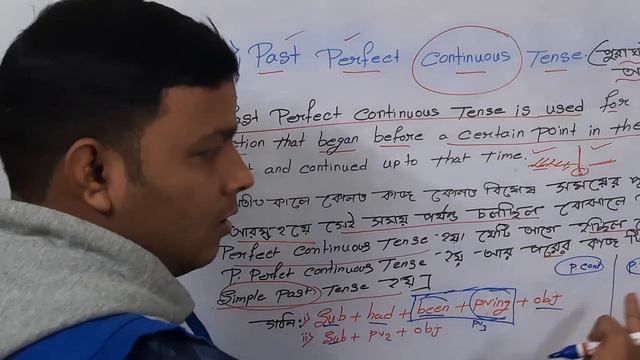 Past Perfect Continuous Tense (পুরাঘ
Past Perfect Continuous Tense is used for
ction that began before a certain point in the
t and continued up to that time.
তীত কালে কোনো কাজ কোনো বিশেষ সময়ের পূ
আরম্ভ হয়ে সেই সময় পর্যন্ত চলছিল বোঝালে
Perfect Continuous Tense হয়। যেটি আগে হচ্ছিল
P. Perfect continuous Tense হয় আর পরের কাজ
Simple Past Tense হয়]
P. cont P
গঠন:- i) Sub + had + been + pving + obj
Pv3
ii) Sub + pv2 + obj